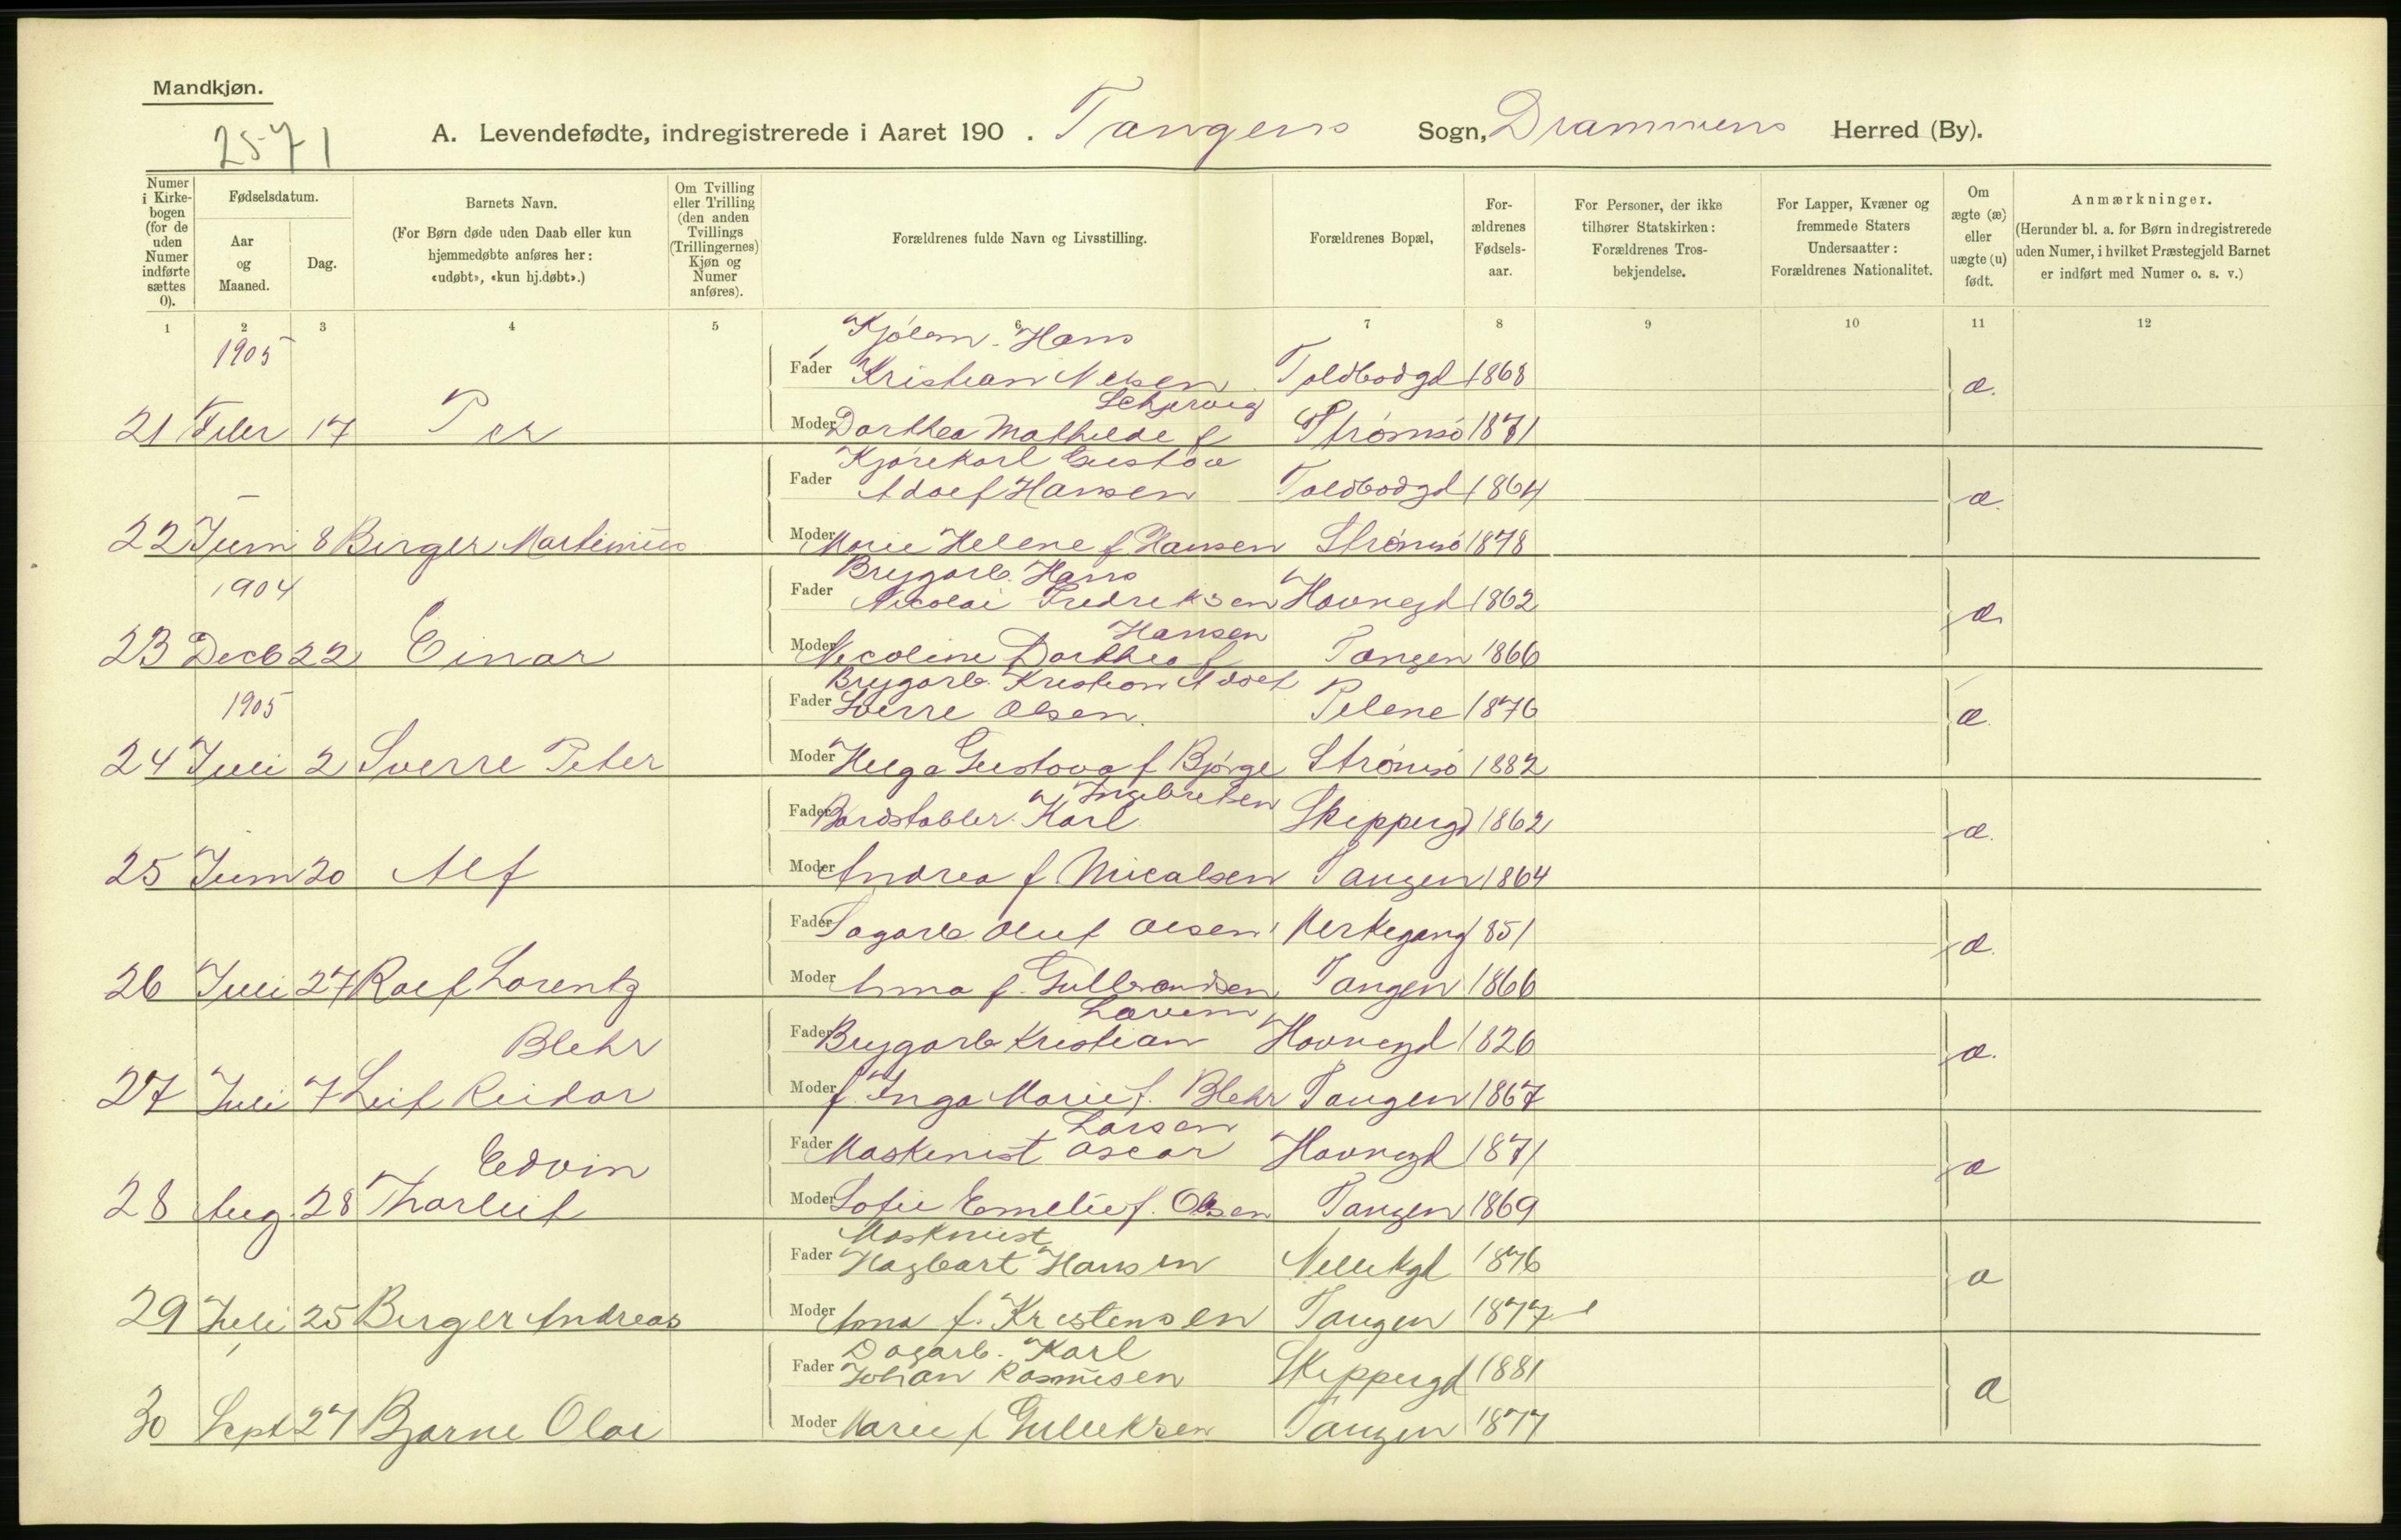 Mandkjøn.
2571
A. Levendefødte, indregistrerede i Aaret 190 . Tangens Sogn, Drammens Herred (By).
Numer i Kirkebogen (for de uden Numer indførte sættes 0).
Fødselsdatum.
Aar og Maaned.
Dag.
Barnets Navn.
(For Børn døde uden Daab eller kun hjemmedøbte anføres her: «udøbt», «kun hj.døbt».)
Om Tvilling eller Trilling (den anden Tvillings (Trillingernes) Kjøn og Numer anføres).
Forældrenes fulde Navn og Livsstilling.
Forældrenes Bopæl,
Forældrenes Fødselsaar.
For Personer, der ikke tilhører Statskirken: Forældrenes Trosbekjendelse.
For Lapper, Kvæner og fremmede Staters Undersaatter: Forældrenes Nationalitet.
Om ægte (æ) eller uægte (u) født.
Anmærkninger.
(Herunder bl. a. for Børn indregistrerede uden Numer, i hvilket Præstegjeld Barnet er indført med Numer o. s. v.)
1 2 3 4 5 6 7 8 9 10 11 12
1905 Hans
Fader Kristian Toldbodgd 1868 æ.
Schjervig
21 Febr 17 Per Moder Dorthea Mathilde f Strømsø 1871
Kjørekarl Gustav
Fader Adolf Hansen Toldbodgd 1864 æ.
22 Juni 8 Birger Martinius Moder Marie Helene f Hansen Strømsø 1878
1904 Brygarb. Hans
Fader Nicolai Fredriksen Havnegd 1862 æ
Hansen
23 Decb 22 Einar Moder Nicoline Dorthea f Tangen 1866
Brygarb. Kristian Adolf
1905 Fader Sverre Olsen. Pelene 1876 æ.
24 Juli 2 Sverre Peter Moder Helga Gustava f Bjørge Strømsø 1882
Ingebretsen
Fader Bordstabler. Karl Skippergd 1862 æ.
25 Juni 20 Alf Moder Andrea f Micalsen Tangen 1864
Fader Sagarb. Oluf Olsen Kirkegang 1851 æ.
26 Juli 27 Rolf Lorentz Moder Anna f. Gulbrandsen Tangen 1866
Blehr Fader Brygarb Kristian Havnegd 1826 æ.
27 Juli 7 Leif Reidar Moder f. Inga Marie f. Blehr Tangen 1867
Larsen
Edvin Fader Maskinist Oscar Havnegd 1871 æ
28 Aug. 28 Thorleif Moder Sofie Emelie f. Olsen Tangen 1869
Maskinist
Fader Hagbart Hansen Nellikgd 1876 æ
29 Juli 25 Birger Andreas Moder Anna f. Kristensen Tangen 1877
Dagarb. Karl
Fader Johan Rasmusen Skippergd 1881 æ
30 Sept 27 Bjarne Olai Moder Marie f Gulliksen Tangen 1877